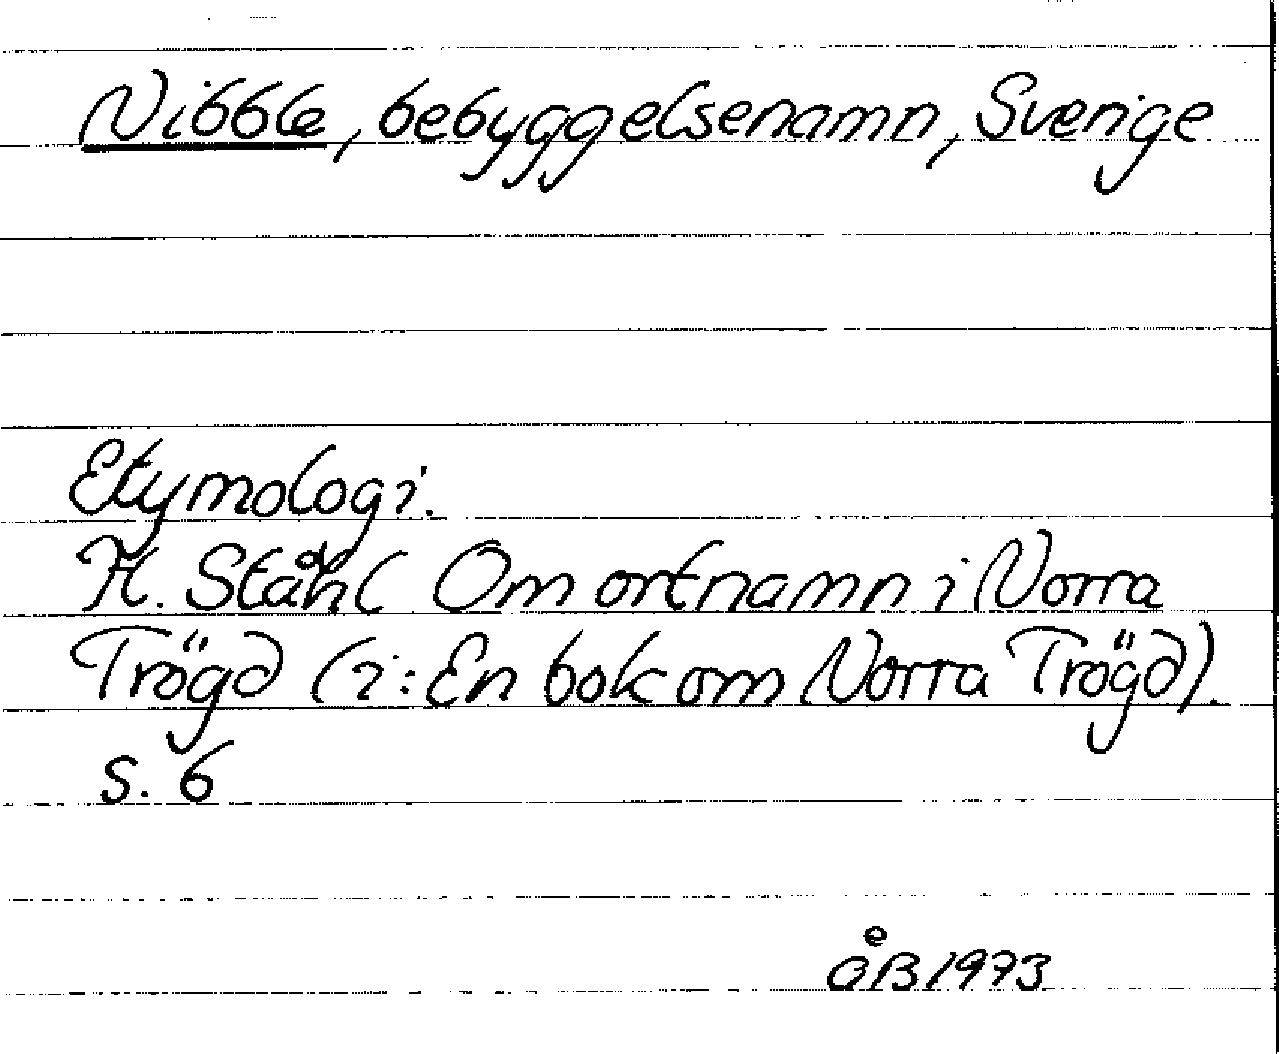 Nibble, bebyggelsenamn, Sverige
Etymologi.
H. Ståhl Om ortnamn i Norra
Trögd (i: En bok om Norra Trögd).
s. 6
ÅB 1973